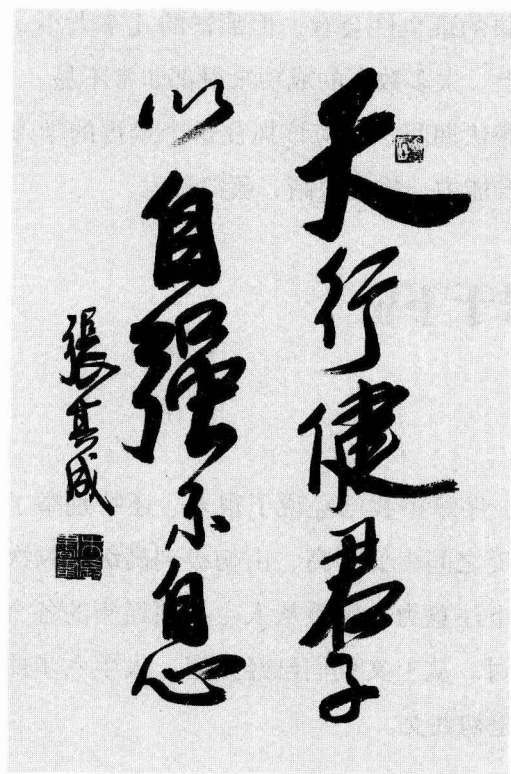 天行健君子
以自强不息
張其成